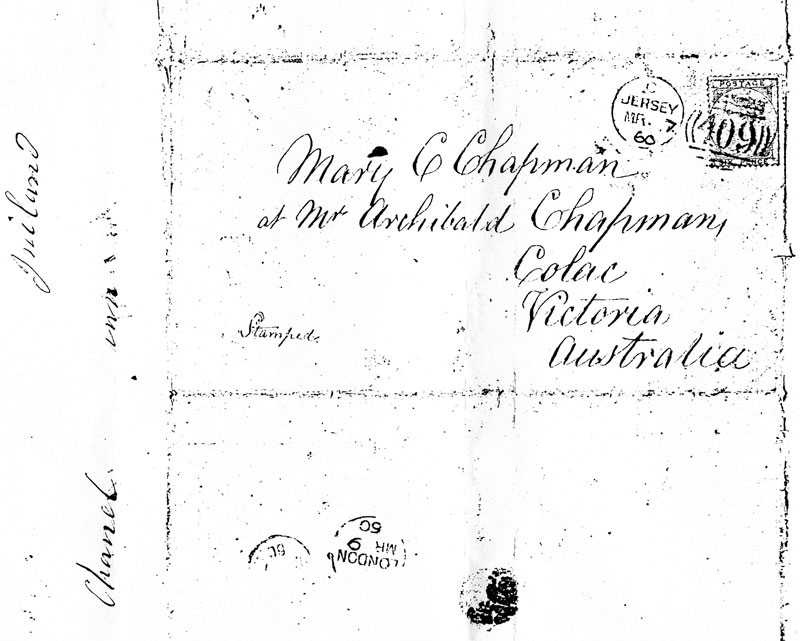 C
JERSEY
MR. 7
60
POSTAGE
409
Mary C Chapman
at Mr Archibald Chapman,
Colac
Victoria
Australia
Stamped.
LONDON
9
MR
60
60
Chanel